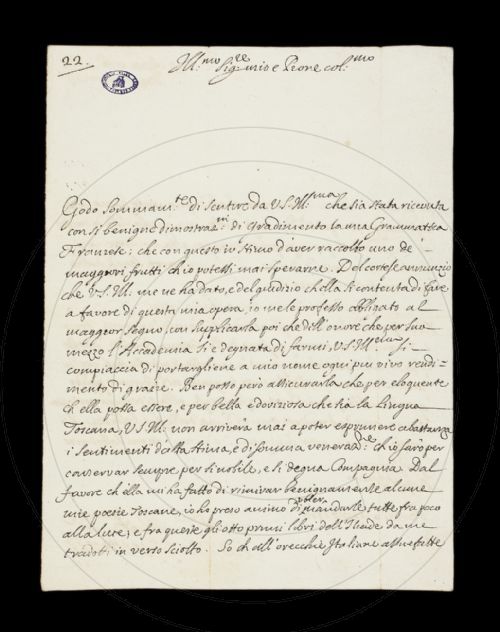 22.
Ill.mo Sig.re mio e Prone col.mo
Godo sommam.te di sentire da V.S. Ill.ma che sia stata ricevuta
con sì benigne dimostraz.ni di gradimento la mia Grammatica
Franzese; che con questo io stimo d'aver raccolto uno de'
maggiori frutti ch'io potessi mai sperarne. Del cortese annunzio
che V.S. Ill. me ne ha dato, e del giudizio ch'ella si contenta di fare
a favore di questa mia opera, io me le professo obbligato al
maggior segno, con supplicarla poi che dell'onore che per suo
mezzo l'Accademia si è degnata di farmi, V.S. Ill.ma si
compiaccia di portargliene a mio nome ogni piu vivo rendi=
mento di grazie. Ben posso però assicurarla che per eloquente
ch'ella possa essere, e per bella e doviziosa che sia la Lingua
Toscana, V.S. Ill. non arriverà mai a poter esprimere abbastanza
i sentimenti di stima, e di somma veneraz.ne ch'io sarò per
conservar sempre per sì nobile, e sì degna Compagnia. Dal
favore ch'ella mi ha fatto di rimirar benignamente alcune
mie poesie Toscane, io ho preso animo di mandarle tutte fra poco
alla luce, e fra queste gli otto primi libri dell'Iliade da me
tradotti in verso sciolto. So ch'all'orecchie Italiane